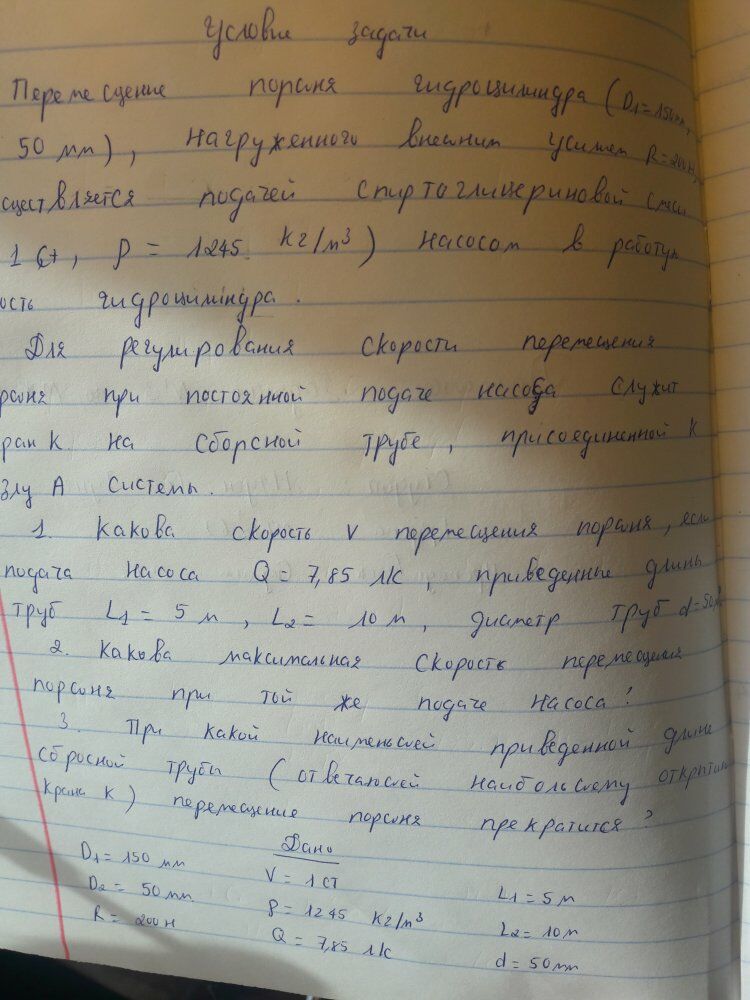 Условие задачи
Перемесцение порсня гидроцилиндра (D1=150мм,
50 мм), нагруженного внешним усилием R=200Н,
сществляется подачей спиртоглицериновой смеси
1 Ст, ρ = 1245 кг/м³) насосом в рабочую
ость гидроцилиндра.
Для регулирования скорости перемещения
рсня при постоянной подаче насоса служит
ран К на сборсной трубе, присоединенной к
злу А системы.
1. Какова скорость V перемесцения порсня, если
подача насоса Q = 7,85 л/с, приведенные длины
труб L1 = 5 м, L2 = 10 м, диаметр труб d=50мм
2. Какова максимальная скорость перемесцения
порсня при той же подаче насоса?
3. При какой наименьсей приведенной длине
сбросной трубы (отвечаюсей наибольсему открытию
крана К) перемесцение порсня прекратится?
Дано
D1 = 150 мм V = 1 ст L1 = 5 м
D2 = 50 мм ρ = 1245 кг/м³ L2 = 10 м
R = 200 Н Q = 7,85 л/с d = 50 мм